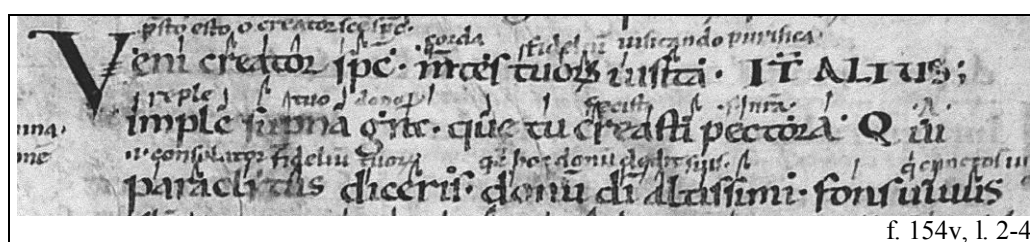 p̄sto esto o creator sc̄e sp̄c · corda fideliū uisitando purifica ·
Veni creator sp̄c · m̄tes tuorꝝ uisita · IT̄ ALIUS;
i reple s tuo fecisti s
imple sup̄na gr̄a · que tu creasti pectora · Q ui
consolator fideliū tuorū hoc donū
paraclitus diceris · donū dī altissimi · fons uiuus
f. 154v, l. 2-4